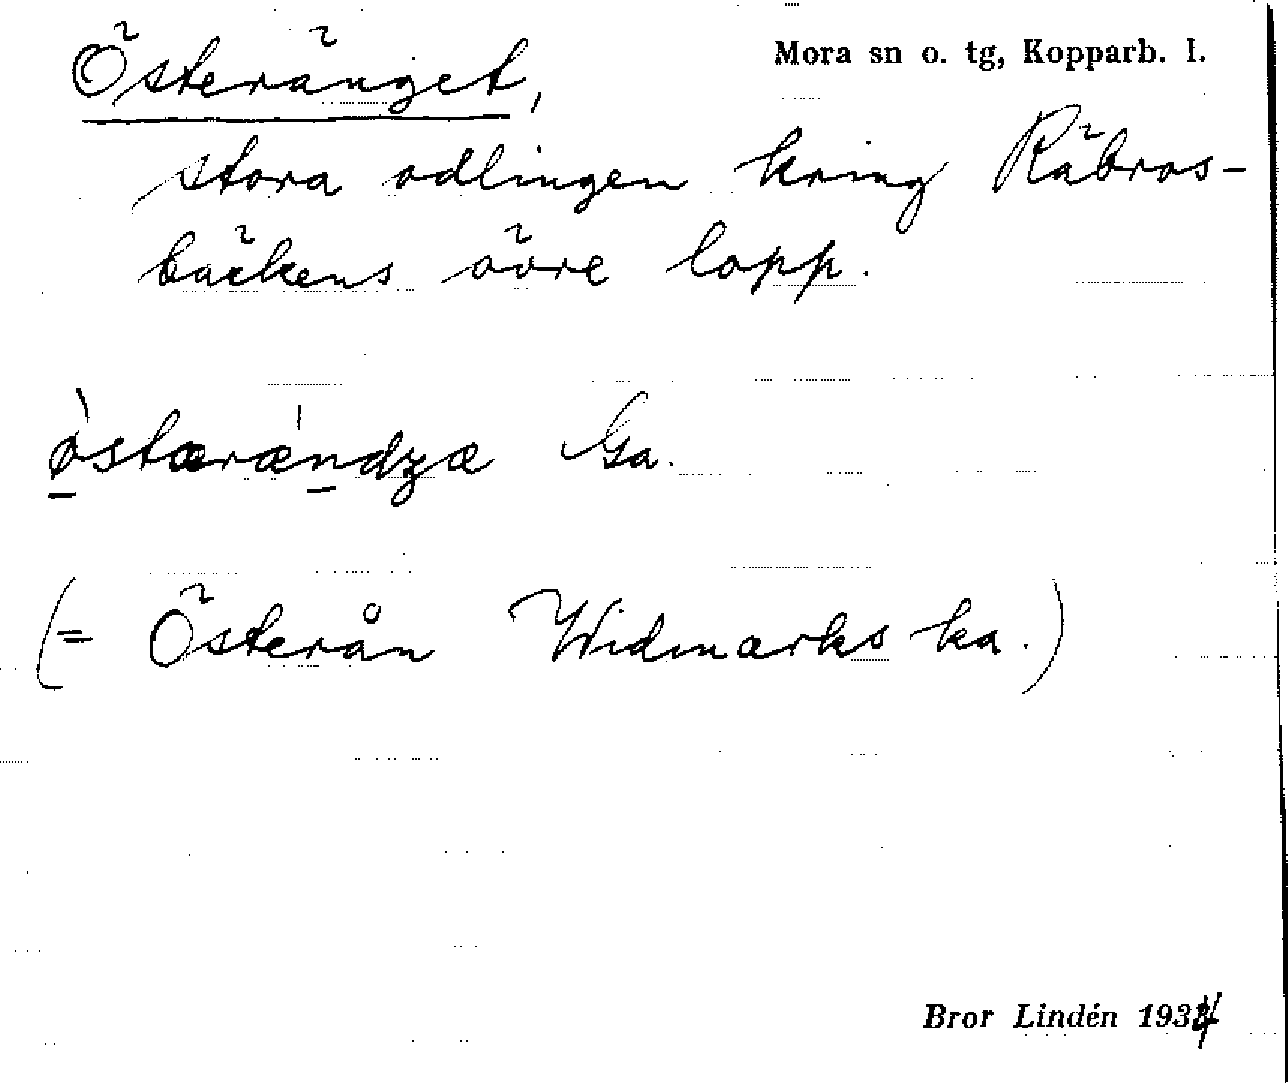 Österänget,
Mora sn o. tg, Kopparb. l.
stora odlingen kring Räbros-
bäckens övre lopp.
östærændzæ Ga.
(= Österån Widmarks ka.)
Bror Lindén 1934